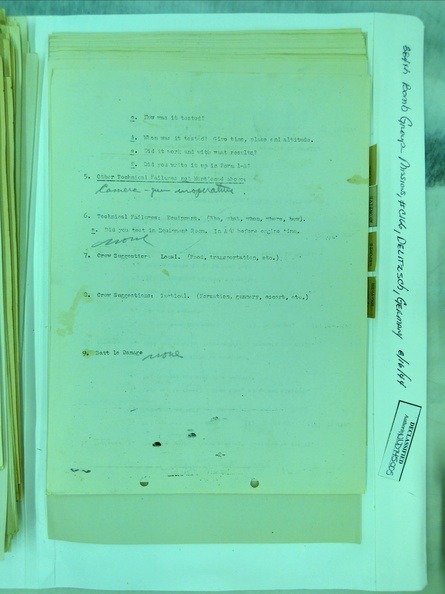 c. How was it tested?
d. When was it tested? Give time, place and altitude.
e. Did it work and with what results?
f. Did you write it up in Form 1-A?
5. Other Technical Failures not Mentioned above.
Camera - gun inoperative.
6. Technical Failures: Equipment. (Who, what, when, where, how).
a. Did you test in Equipment Room. In A/C before engine time.
none
7. Crew Suggestion: Local. (Food, transportation, etc.)
8. Crew Suggestions: Tactical. (formation, gunnery, escort, etc.)
9. Battle Damage none
Bomb Group Missions, #C166, DELITZSCH, GERMANY 8/16/44
DECLASSIFIED
Authority